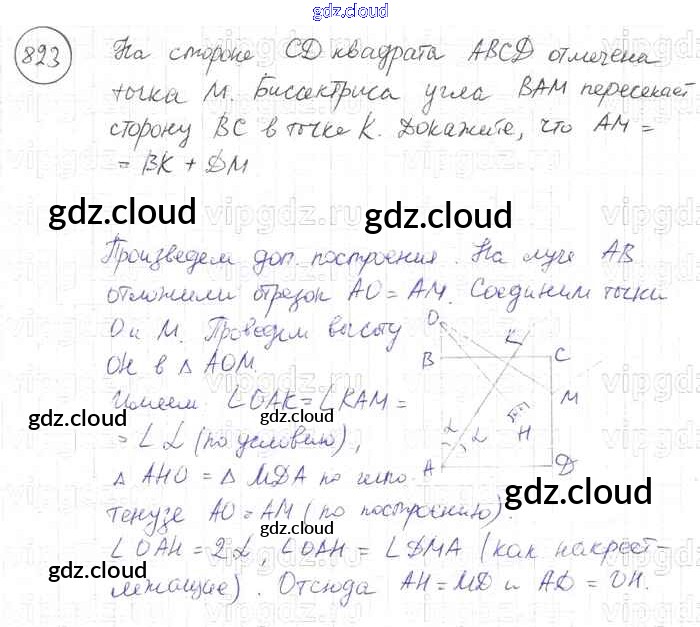 gdz.cloud
893 На стороне CD квадрата ABCD отмечена
точка М. Биссектриса угла BAM пересекает
сторону BC в точке K. Докажите, что AM =
= BK + DM
gdz.cloud
gdz.cloud
Произведем доп. построения. На луче AB
отложили отрезок AO = AM. Соединим точки
O и M. Проведем высоту
OH в △ AOM.
Имеем ∠OAK = ∠KAM =
= ∠α (по условию),
△ AHO = △ MDA по гипо-
тенузе AO = AM (по построению).
∠OAH = 2α, ∠OAH = ∠DMA (как накрест-
лежащие). Отсюда AH = MD и AD = OH.
O
K
B
C
M
H
α
α
A
D
gdz.cloud
gdz.cloud
gdz.cloud
gdz.cloud
gdz.cloud
gdz.cloud
vipgdz.ru